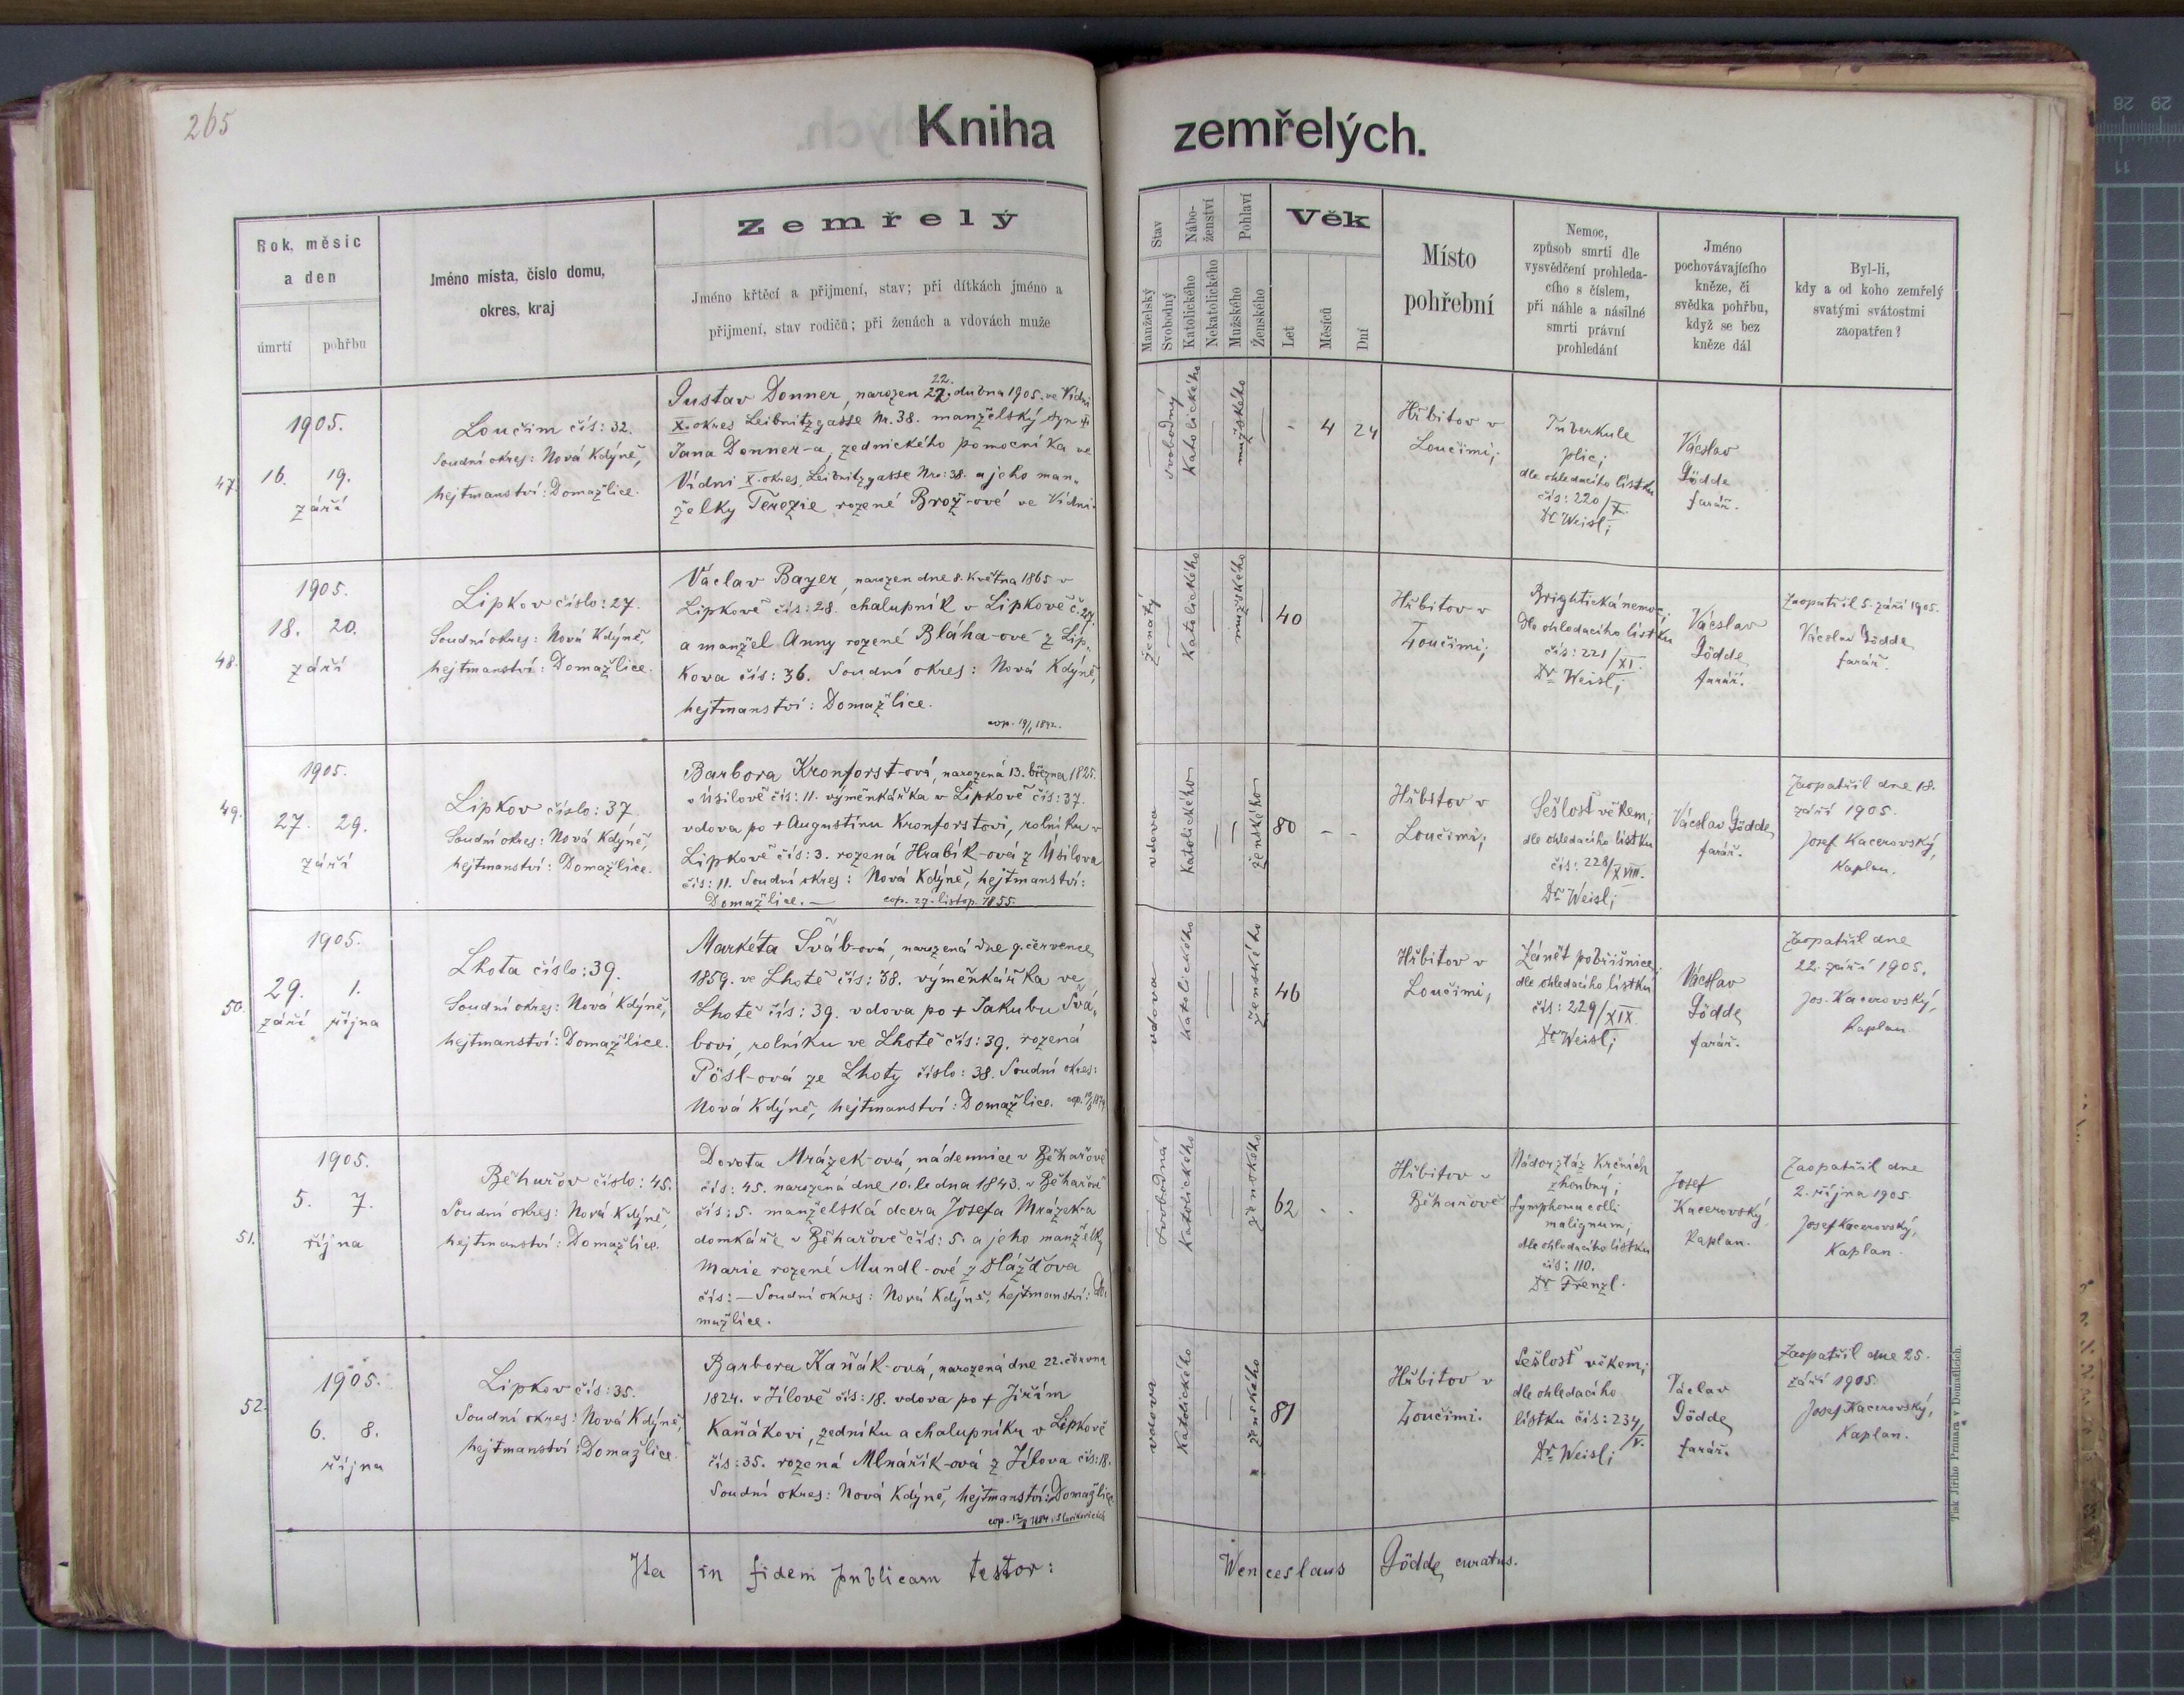 265
Kniha zemřelých.
Rok, měsíc
a den
úmrtí pohřbu
Jméno místa, číslo domu,
okres, kraj
Zemřelý
Jméno křtěcí a přijmení, stav; při dítkách jméno a
přijmení, stav rodičů; při ženách a vdovách muže
Stav
Manželský
Svobodný
Nábo-
ženství
Katolického
Nekatolického
Pohlaví
Mužského
Ženského
Věk
Let
Měsíců
Dní
Místo
pohřební
Nemoc,
způsob smrti dle
vysvědčení prohleda-
cího s číslem,
při náhle a násilné
smrti právní
prohledání
Jméno
pochovávajícího
kněze, či
svědka pohřbu,
když se bez
kněze dál
Byl-li,
kdy a od koho zemřelý
svatými svátostmi
zaopatřen?
47.
1905.
16. 19.
září
Loučim čís: 32.
Soudní okres: Nová Kdýně,
hejtmanství: Domažlice.
22.
Gustav Donner, narozen 27. dubna 1905. ve Vídni
X. okres Leibnitzgasse Nr. 38. manželský syn
Jana Donner-a, zednického pomocníka ve
Vídni X. okres, Leibnitzgasse Nro: 38. a jeho man„
želky Terezie rozené Brož-ové ve Vídni.
svobodný
Katolického
mužského
- 4 24
Hřbitov v
Loučimi;
Tuberkule
plic;
dle ohledacího lístku
čís: 220/X.
Dr Weisl;
Václav
Gödde
farář.
48.
1905.
18. 20.
září
Lipkov číslo: 27.
Soudní okres: Nová Kdýně,
hejtmanství: Domažlice.
Václav Bayer, narozen dne 8. května 1865 v
Lipkově čís: 28. chalupník v Lipkově č. 27.
a manžel Anny rozené Bláha-ové z Lip„
kova čís: 36. Soudní okres: Nová Kdýně,
hejtmanství: Domažlice.
cop. 19/1 1892.
ženatý
Katolického
mužského
40
Hřbitov v
Loučimi;
Brightická nemoc;
dle ohledacího lístku
čís: 221/XI.
Dr Weisl;
Václav
Gödde,
farář.
Zaopatřil 5. září 1905.
Václav Gödde,
farář.
49.
1905.
27. 29.
září
Lipkov číslo: 37.
Soudní okres: Nová Kdýně,
hejtmanství: Domažlice.
Barbora Kronforst-ová, narozená 13. března 1825.
v Úsilově čís: 11. výměnkářka v Lipkově čís: 37.
vdova po + Augustinu Kronforstovi, rolníku v
Lipkově čís: 3. rozená Hrabík-ová z Úsilova
čís: 11. Soudní okres: Nová Kdýně, hejtmanství:
Domažlice. — cop. 29. listop. 1855.
vdova
katolického
ženského
80 - -
Hřbitov v
Loučimi;
Sešlost věkem;
dle ohledacího lístku
čís: 228/XVIII.
Dr Weisl;
Václav Gödde,
farář.
Zaopatřil dne 18.
září 1905.
Josef Kacerovský,
kaplan.
50.
1905.
29. 1.
září října
Lhota číslo: 39.
Soudní okres: Nová Kdýně,
hejtmanství: Domažlice.
Markéta Šváb-ová, narozená dne 9. července
1859. ve Lhotě čís: 38. výměnkářka ve
Lhotě čís: 39. vdova po + Jakubu Švá„
bovi, rolníku ve Lhotě čís: 39. rozená
Pösl-ová ze Lhoty číslo: 38. Soudní okres:
Nová Kdýně, hejtmanství: Domažlice.
vdova
katolického
ženského
46
Hřbitov v
Loučimi,
Zánět pobřišnice;
dle ohledacího lístku
čís: 229/XIX.
Dr Weisl;
Václav
Gödde,
farář.
Zaopatřil dne
22. září 1905.
Jos. Kacerovský,
kaplan
51.
1905.
5. 7.
října
Běhařov číslo: 45.
Soudní okres: Nová Kdýně,
hejtmanství: Domažlice.
Dorota Mrázek-ová, nádennice v Běhařově
čís: 45. narozená dne 10. ledna 1843. v Běhařově
čís: 5. manželská dcera Josefa Mrázek-a
domkáře v Běhařově čís: 5. a jeho manželky
Marie rozené Mundl-ové z Hlážďova
čís: — Soudní okres: Nová Kdýně, hejtmanství: Do„
mažlice.
svobodná
Katolického
ženského
62 . .
Hřbitov v
Běhařově
Nádor žláz krčních
zhoubný;
Lymphoma colli
malignum;
dle ohledacího lístku
čís: 110.
Dr Frenzl.
Josef
Kacerovský,
kaplan.
Zaopatřil dne
2. října 1905.
Josef Kacerovský,
kaplan.
52.
1905.
6. 8.
října
Lipkov čís: 35.
Soudní okres: Nová Kdýně,
hejtmanství: Domažlice.
Barbora Kaňák-ová, narozená dne 22. června
1824. v Jílově čís: 18. vdova po + Jiřím
Kaňákovi, zedníku a chalupníku v Lipkově
čís: 35. rozená Mlnářík-ová z Jílova čís: 18.
Soudní okres: Nová Kdýně, hejtmanství: Domažlice
vdova
Katolického
ženského
81
Hřbitov v
Loučimi.
Sešlost věkem;
dle ohledacího
lístku čís: 234/V.
Dr Weisl;
Václav
Gödde,
farář.
Zaopatřil dne 25.
září 1905.
Josef Kacerovský,
kaplan.
Ita in fidem publicam testor: Wenceslaus Gödde, curatus.
Tisk Jiřího Prunara v Domažlicích.